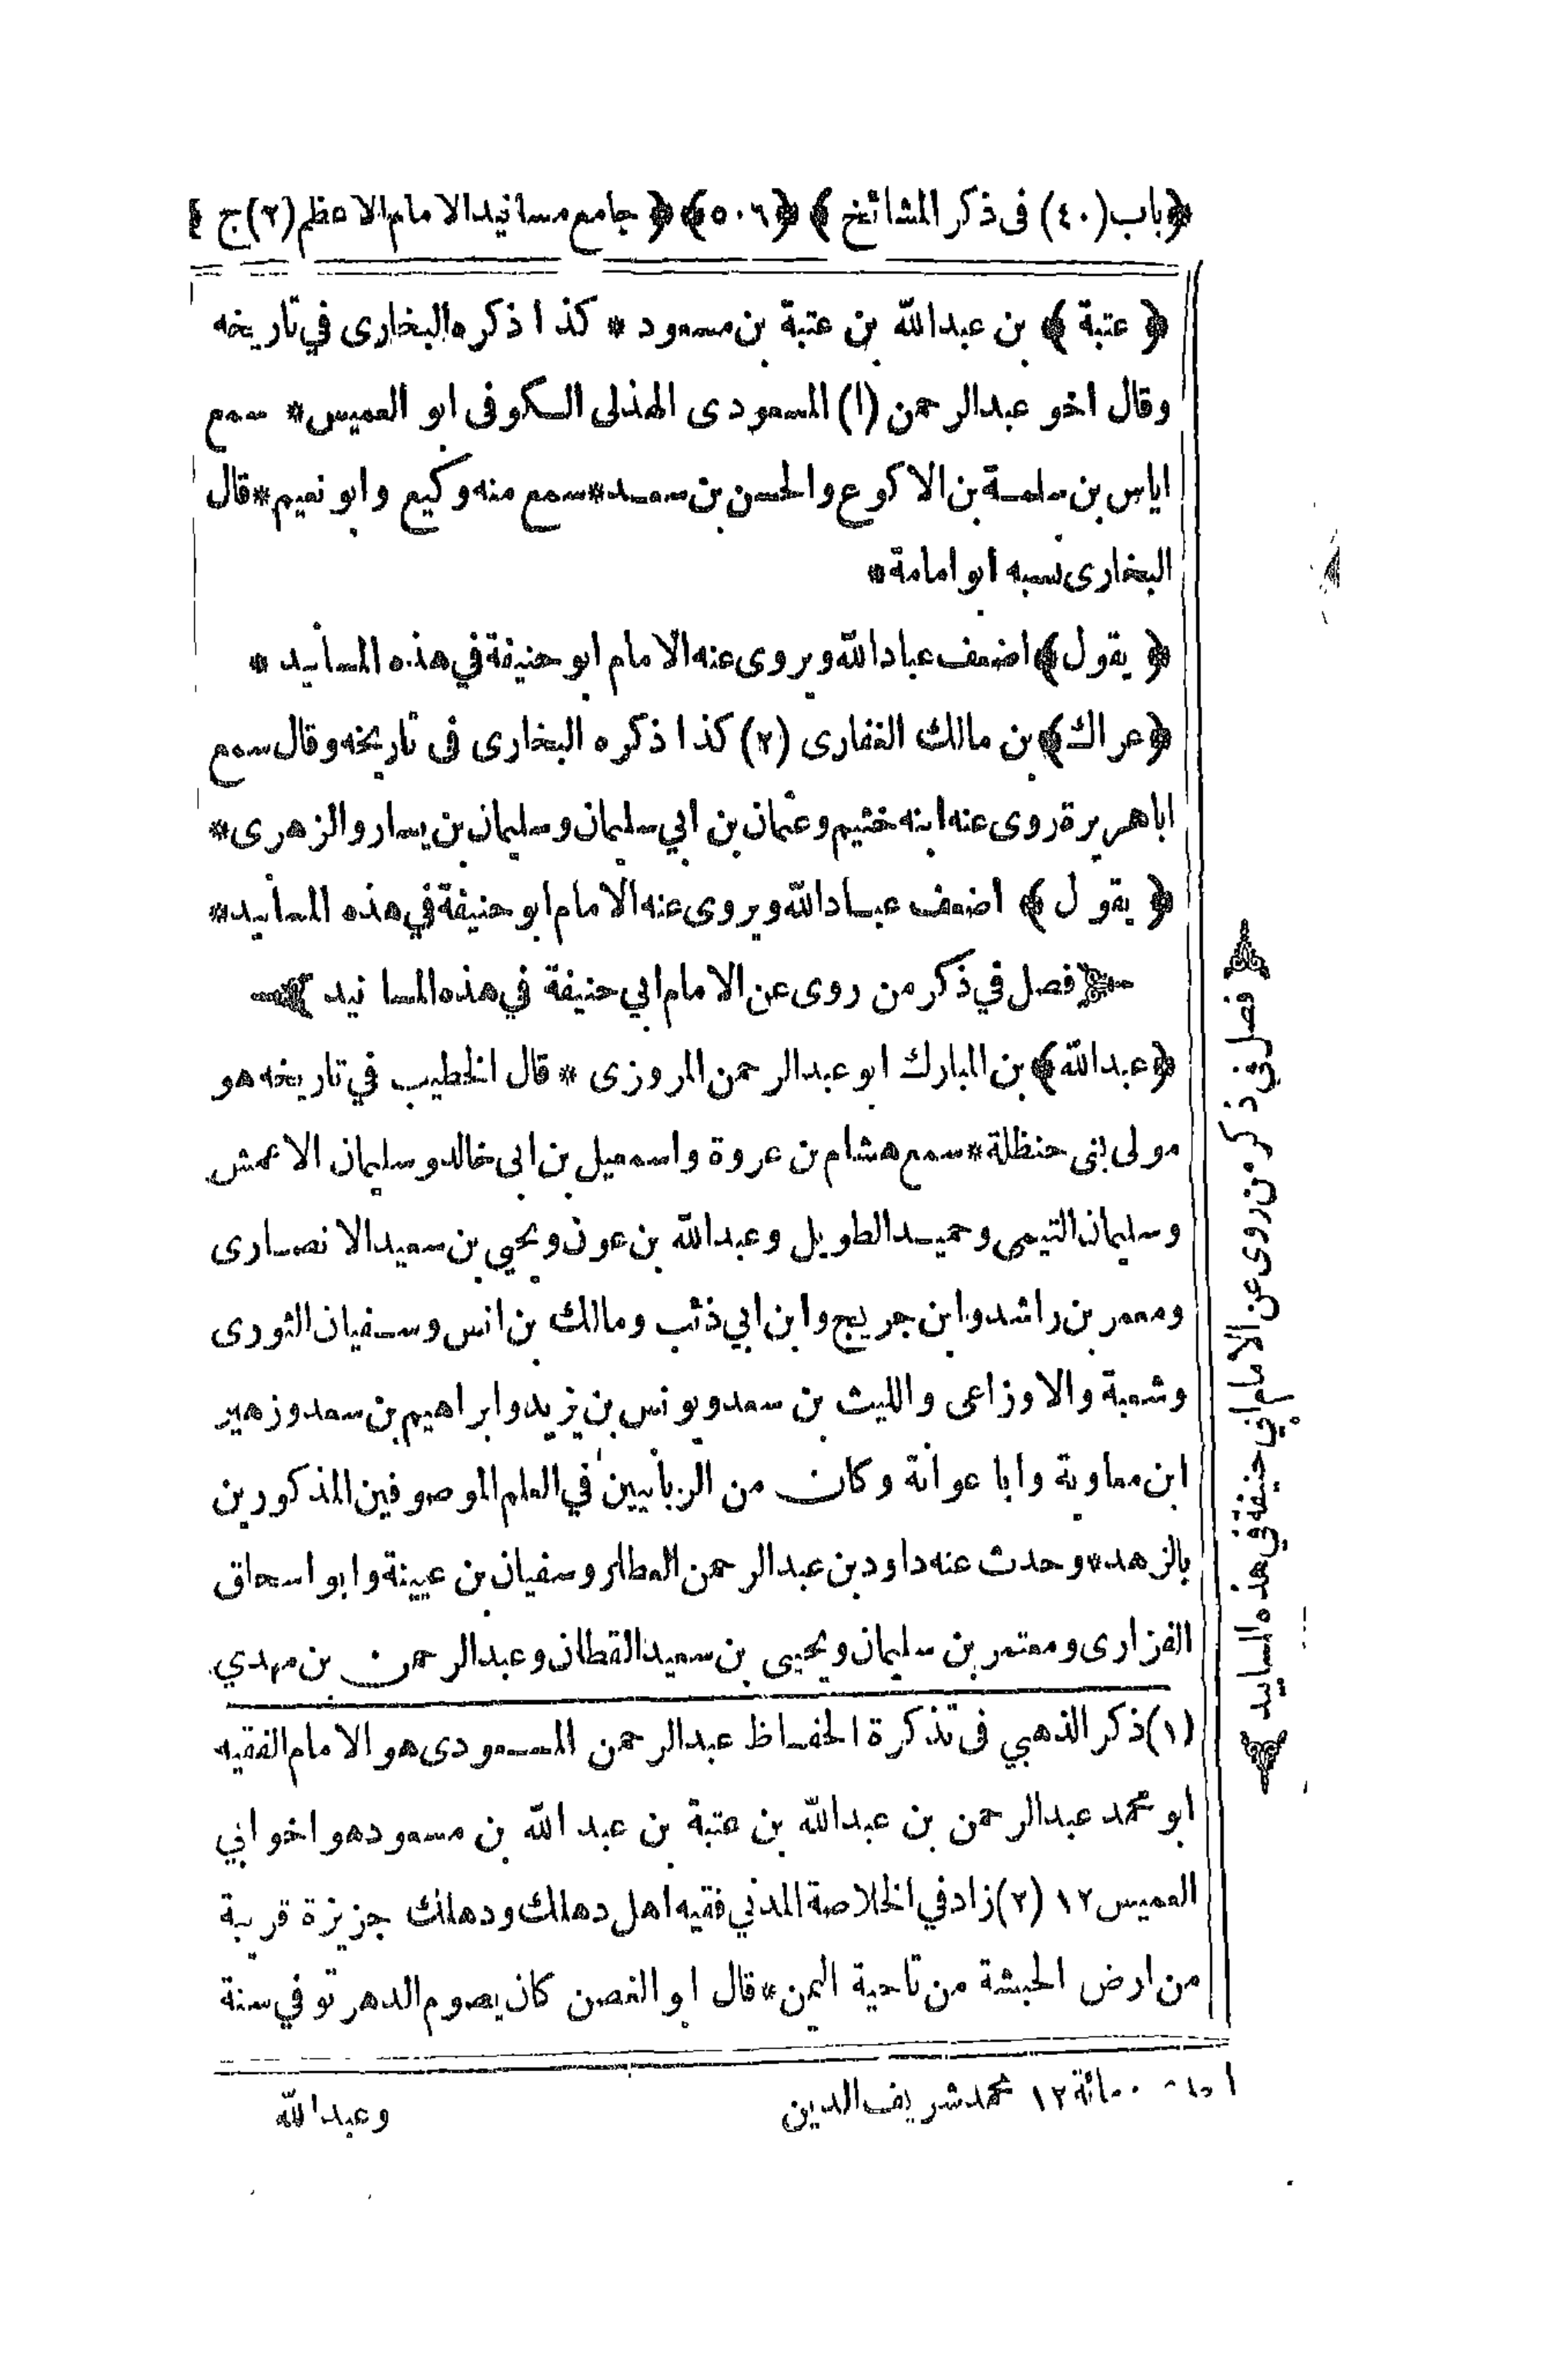 ﴿باب (٤٠) فى ذكر المشائخ﴾ ﴿٥٠٦﴾ ﴿جامع مسانيد الامام الاعظم (٢) ج﴾
﴿عتبة﴾ بن عبدالله بن عتبة بن مسعود * كذا ذكره البخارى في تاريخه
وقال اخو عبدالرحمن (١) المسعودى الهذلى الكوفى ابو العميس * سمع
اياس بن سلمة بن الاكوع والحسن بن سعد * سمع منه وكيع وابو نعيم * قال
البخارى نسبه ابو امامة *
﴿يقول﴾ اضعف عباد الله ويروى عنه الامام ابو حنيفة في هذه المسانيد *
﴿عراك﴾ بن مالك الغفارى (٢) كذا ذكره البخارى فى تاريخه وقال سمع
اباهريرة روى عنه ابنه خثيم وعثمان بن ابي سليمان وسليمان بن يسار والزهرى *
﴿يقول﴾ اضعف عباد الله ويروى عنه الامام ابو حنيفة في هذه المسانيد *
﴿فصل في ذكر من روى عن الامام ابي حنيفة في هذه المسانيد﴾
﴿عبدالله﴾ بن المبارك ابو عبدالرحمن المروزى * قال الخطيب في تاريخه هو
مولى بنى حنظلة * سمع هشام بن عروة واسمعيل بن ابى خالد وسليمان الاعمش
وسليمان التيمى وحميد الطويل وعبدالله بن عون ويحيي بن سعيد الانصارى
ومعمر بن راشد وابن جريج وابن ابي ذئب ومالك بن انس وسفيان الثورى
وشعبة والاوزاعى والليث بن سعد ويونس بن يزيد وابراهيم بن سعد وزهير
ابن معاوية وابا عوانة وكان من الربانيين في العلم الموصوفين المذكورين
بالزهد * وحدث عنه داود بن عبدالرحمن العطار وسفيان بن عيينة وابو اسحاق
الفزارى ومعتمر بن سليمان ويحيى بن سعيد القطان وعبدالرحمن بن مهدي
(١) ذكر الذهبي فى تذكرة الحفاظ عبدالرحمن المسعودى هو الامام الفقيه
ابو محمد عبدالرحمن بن عبدالله بن عتبة بن عبد الله بن مسعود هو اخو ابي
العميس ١٢ (٢) زاد في الخلاصة المدني فقيه اهل دهلك ودهلك جزيزة قريبة
من ارض الحبشة من ناحية اليمن * قال ابو الغصن كان يصوم الدهر توفي سنة
مائة ١٢ محمد شريف الدين
وعبدالله
﴿فصل في ذكر من روى عن الامام ابي حنيفة في هذه المسانيد﴾